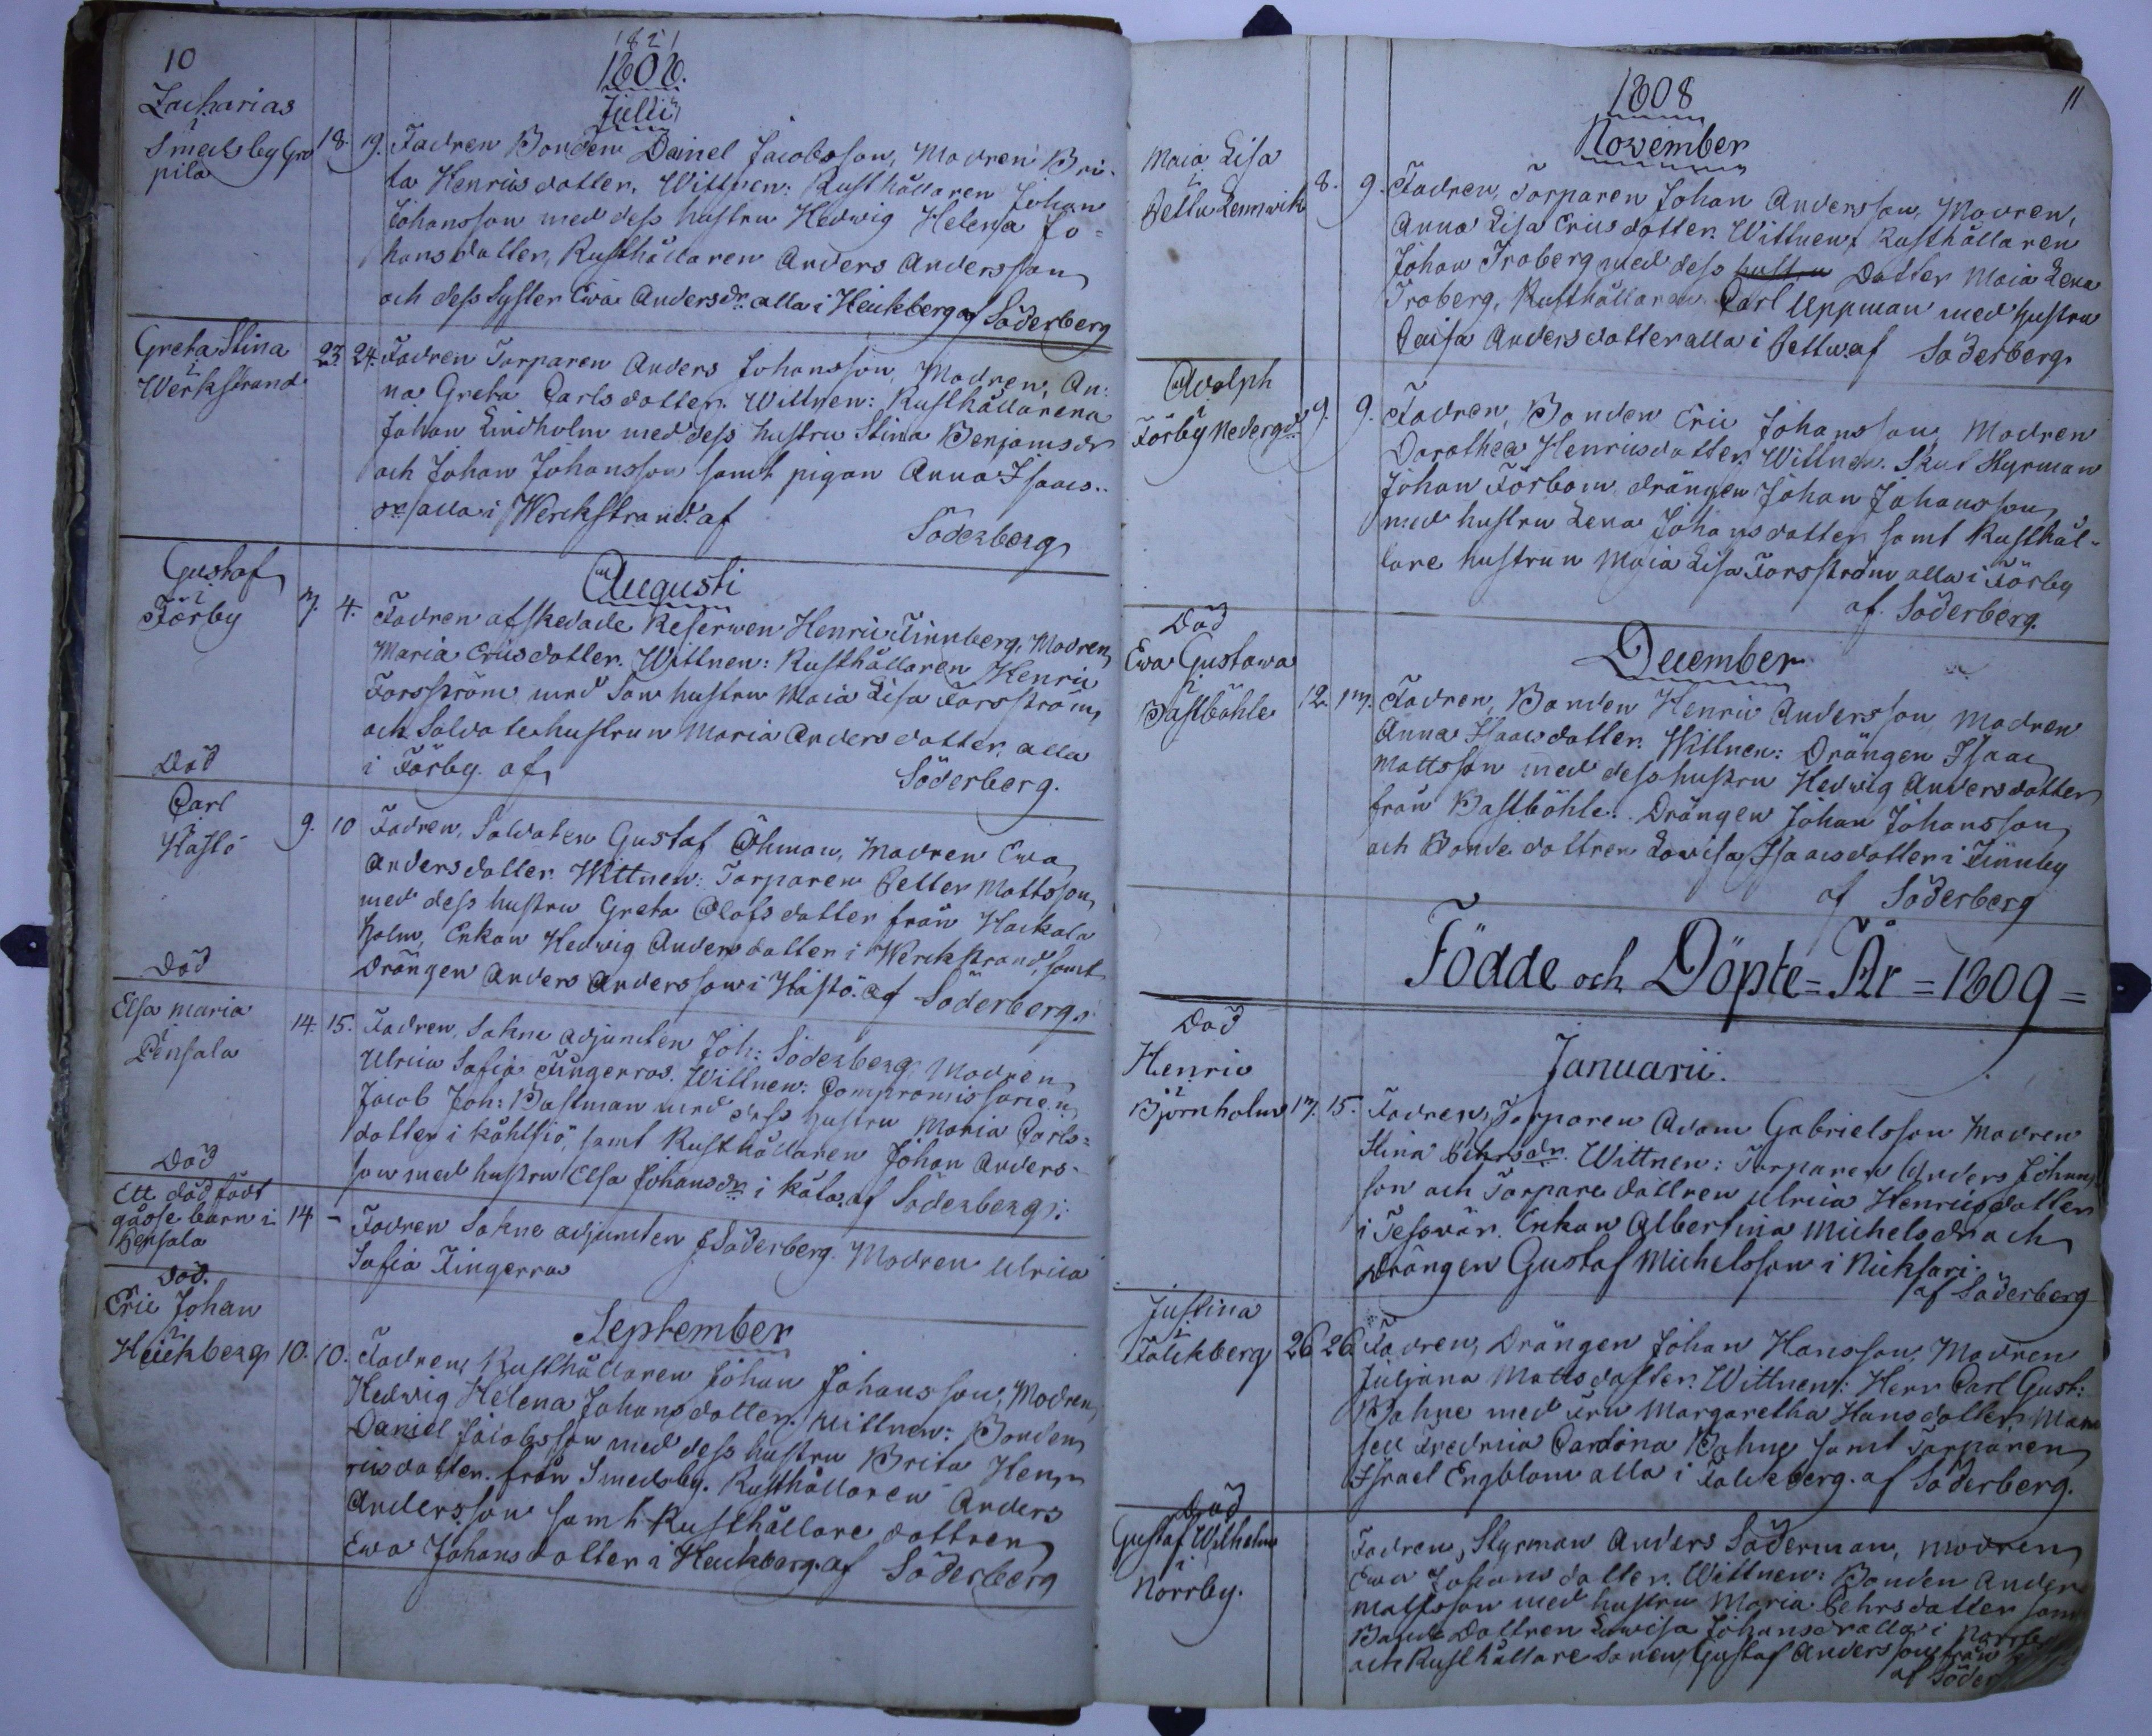 10
1821
1808.
Julii
Zacharias
i
Smedsby Gro
pila
18. 19. Fadren Bonden Daniel Jacobsson, Modren Bri-
ta Henricsdotter. Wittnen: Rusthållaren Johan
Johansson med dess hustru Hedwig Helena Jo-
hansdotter, Rusthållaren Anders Andersson
och dess Syster Ewa Andersdr. alla i Heickberg af Söderberg
Greta Stina
i
Werkstrand
23. 24. Fadren Torparen Anders Johansson, Modren, An-
na Greta Carlsdotter. Wittnen: Rusthållarena
Johan Lindholm med dess hustru Stina Benjamsdr
och Johan Johansson samt pigan Anna Isaacs-
dr. alla i Werckstrand. af
Söderberg
Augusti
Gustaf
i
Förby
3. 4. Fadren afskedade Reserwen Henric Finnberg, Modren
Maria Ericsdotter. Wittnen: Rusthållaren Henric
Forsström med Son hustru Maia Lisa Forsström,
och Soldatehustrun Maria Andersdotter alla
i Förby. af
Söderberg.
Död
Carl
i
Hastö
9. 10 Fadren, Soldaten Gustaf Öhman, Modren Ewa
Andersdotter. Wittnen: Torparen Petter Mattsson
med dess hustru Greta Olofsdotter från Hackala
holm, Enkan Hedwig Andersdotter i Werckstrand, samt
Drängen Anders Andersson i Hastö. af Söderberg.
Död
Elsa Maria
i
Pensala
14. 15. Fadren, Sokne Adjuncten Joh: Söderberg, Modren
Ulrica Safia Fingerroos. Wittnen: Compromissarien
Jacob Joh: Bastman med dess hustru Maria Carls-
dotter i Kåhlsiö, samt Rusthållaren Johan Anders-
son med hustru Elsa Johansdr. i Kåla. af Söderberg:
Död
Ett dödfödt
gåsse barn i
Pensala
14 - Fadren Sokne adjuncten J Söderberg. Modren Ulrica
Safia Fingerroos
September
Död.
Eric Johan
i
Heickberg
10. 10. Fadren, Rusthållaren Johan Johansson, Modren
Hedwig Helena Johansdotter. Wittnen: Bonden
Daniel Jacobsson med dess hustru Brita Hen-
ricsdotter. från Smedsby. Rusthållaren Anders
Andersson samt Rusthållare dottren
Ewa Johansdotter i Heickberg. af Söderberg
11
1808
November
Maia Lisa
i
Pettu Lemwik
8. 9. Fadren, Torparen Johan Andersson, Modren,
Anna Lisa Ericsdotter. Wittnen: Rusthållaren
Johan Troberg med dess hustru Dotter Maia Lena
Troberg, Rusthållaren Carl Uppman med hustru
Caisa Andersdotter alla i Pettu. af Söderberg.
Adolph
i
Förby Nedergd
9. 9. Fadren, Bonden Eric Johansson, Modren
Dorothea Henricsdotter. Wittnen. Skut Styrman
Johan Förbom, drängen Johan Johansson
med hustru Lena Johansdotter samt Rusthål-
lare hustrun Maja Lisa Forsström alla i Förby
af. Söderberg.
December
Död
Ewa Gustawa
i
Bastböhle
12. 13. Fadren, Bonden Henric Andersson, Modren
Anna Isaacsdotter. Wittnen: Drängen Isaac
Mattsson med dess hustru Hedwig Andersdotter
från Bastböhle. Drängen Johan Johansson
och Bonde dottren Lowisa Isaacsdotter i Finnby
af Söderberg
Födde och Döpte = År = 1809 =
Januarii.
Död
Henric
i
Björnholm
13. 15. Fadren, Torparen Adam Gabrielsson Modren
Stina Pehrsdr. Wittnen: Torparen Anders Johans
son och Torpare dottren Ulrica Henricsdotter
i Tesswär. Enkan Albertina Michelsdr och
Drängen Gustaf Michelsson i Nicksari.
af Söderberg
Justina
i
Falckberg
26 26 Fadren, Drängen Johan Hansson, Modren
Juliana Mattsdotter. Wittnen: Herr Carl Gust:
Bahne med Fru Margaretha Hansdotter, Mam
sell Fredrica Carolina Bahne samt Torparen
Israel Engblom alla i Falckberg. af Söderberg.
Död
Gustaf Wilhelm
i
Norrby.
Fadren, Styrman Anders Söderman, modren
Ewa Johansdotter. Wittnen: Bonden Anders
Mattsson med hustru Maria Pehrsdotter samt
Bonde Dottren Lowisa Johansdr alla i Norrby
och Rusthållare Sonen Gustaf Andersson från
af Söder